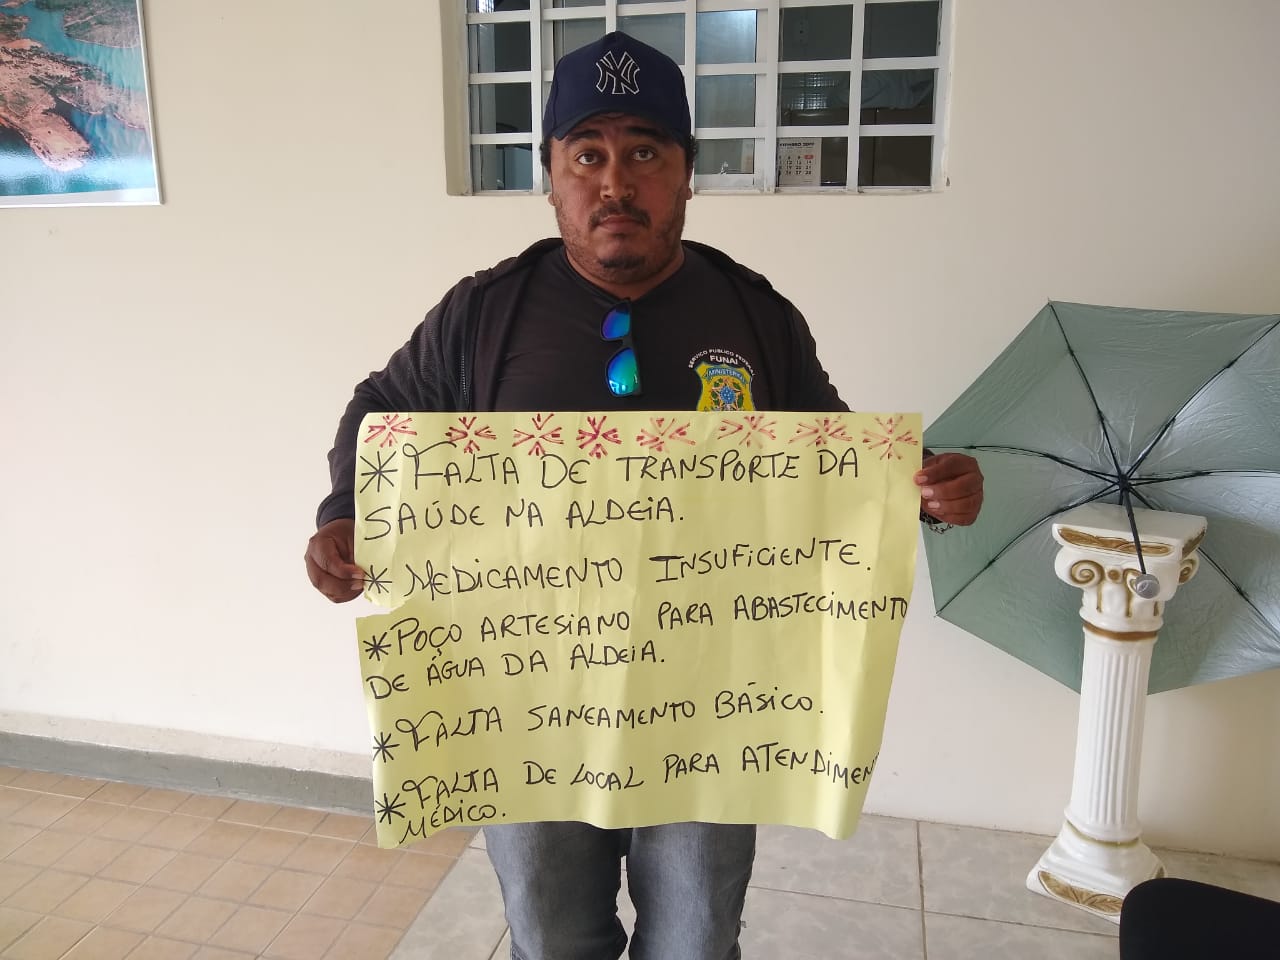 NY
SERVIÇO PÚBLICO FEDERAL
FUNAI
* FALTA DE TRANSPORTE DA
SAÚDE NA ALDEIA.
* MEDICAMENTO INSUFICIENTE.
* POÇO ARTESIANO PARA ABASTECIMENTO
DE ÁGUA DA ALDEIA.
* FALTA SANEAMENTO BÁSICO.
* FALTA DE LOCAL PARA ATENDIMEN
MÉDICO.